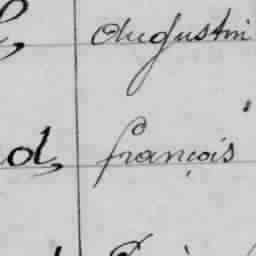 Augustin
d, françois